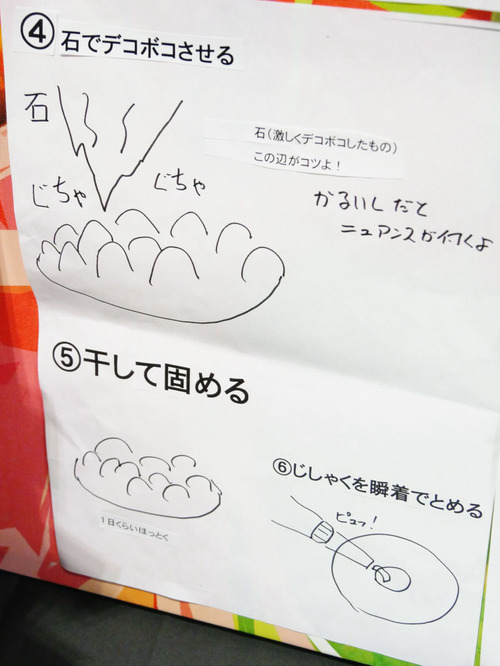 ④石でデコボコさせる
石
じちゃ
じちゃ
石(激しくデコボコしたもの)
この辺がコツよ!
かるいしだと
ニュアンスが付くよ
⑤干して固める
1日くらいほっとく
⑥じしゃくを瞬着でとめる
ピュッ!